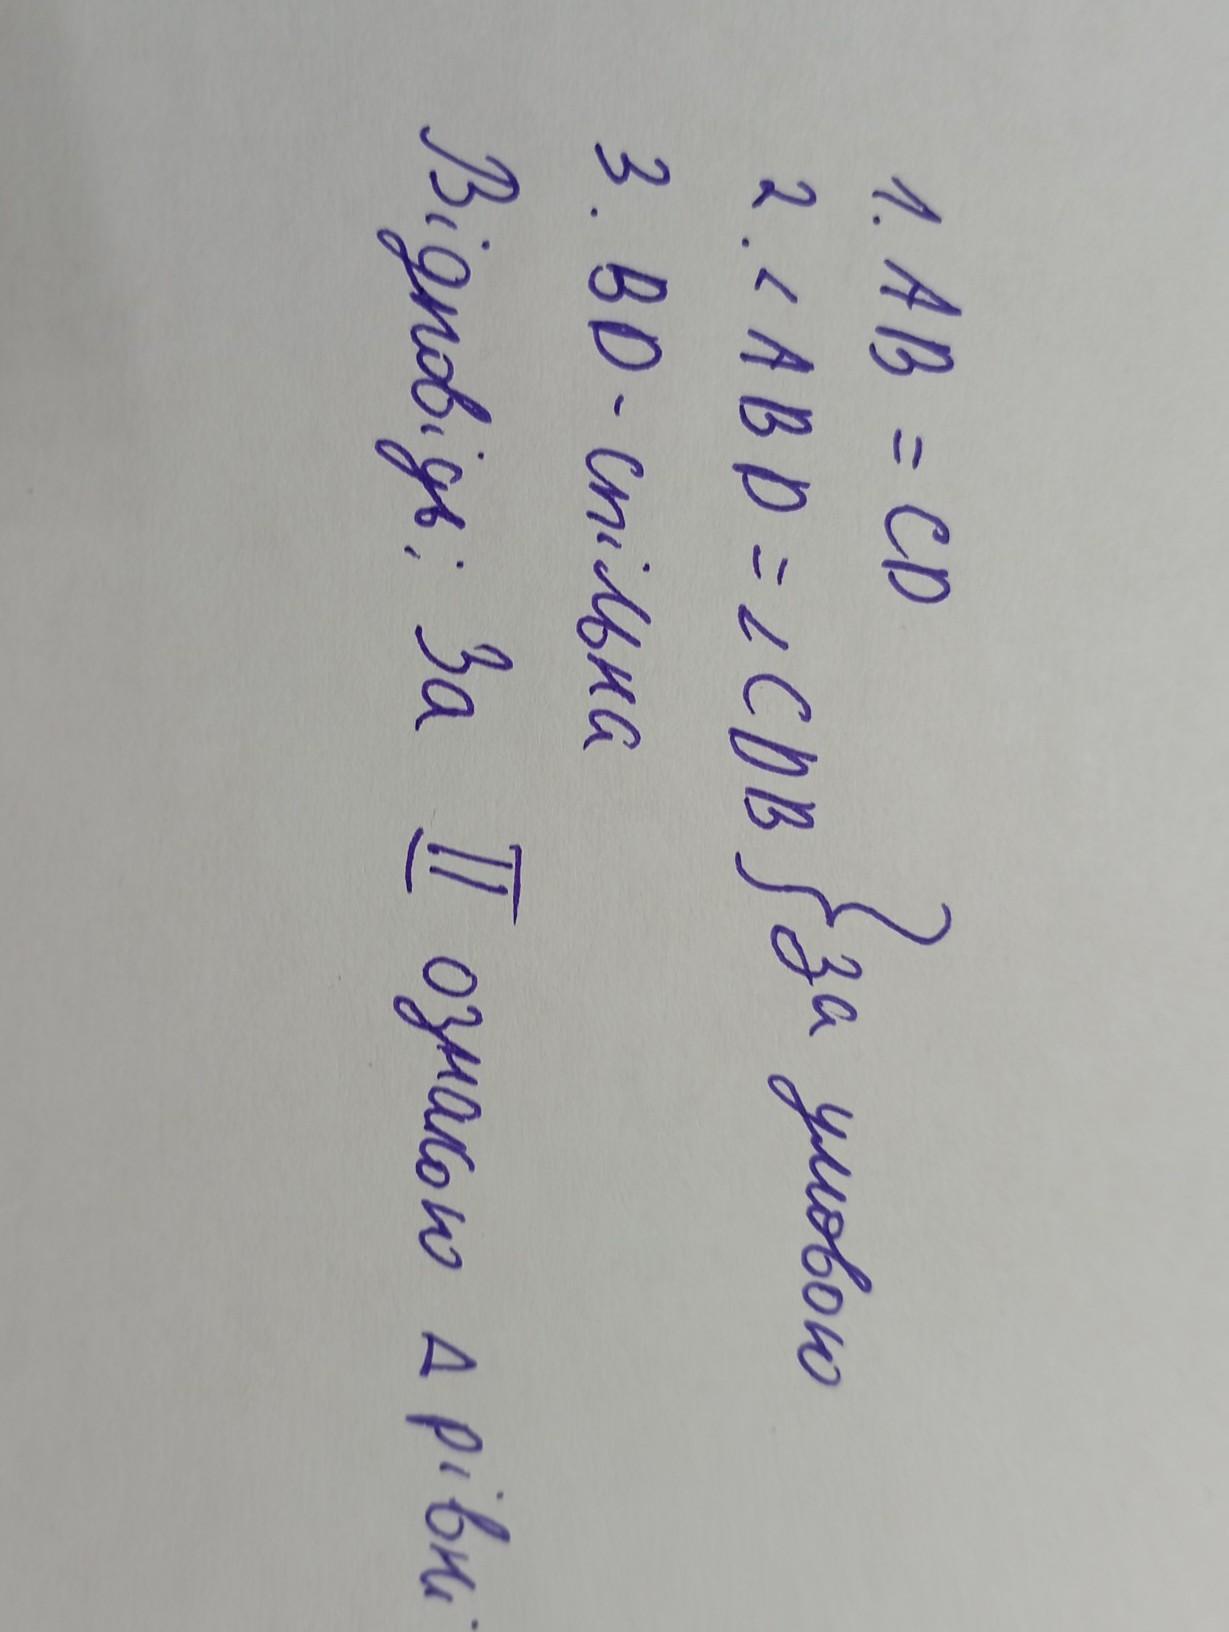 1. AB = CD
2. < ABD = ∠ CDB } за умовою
3. BD - спільна
Відповідь: За II ознакою Δ рівні